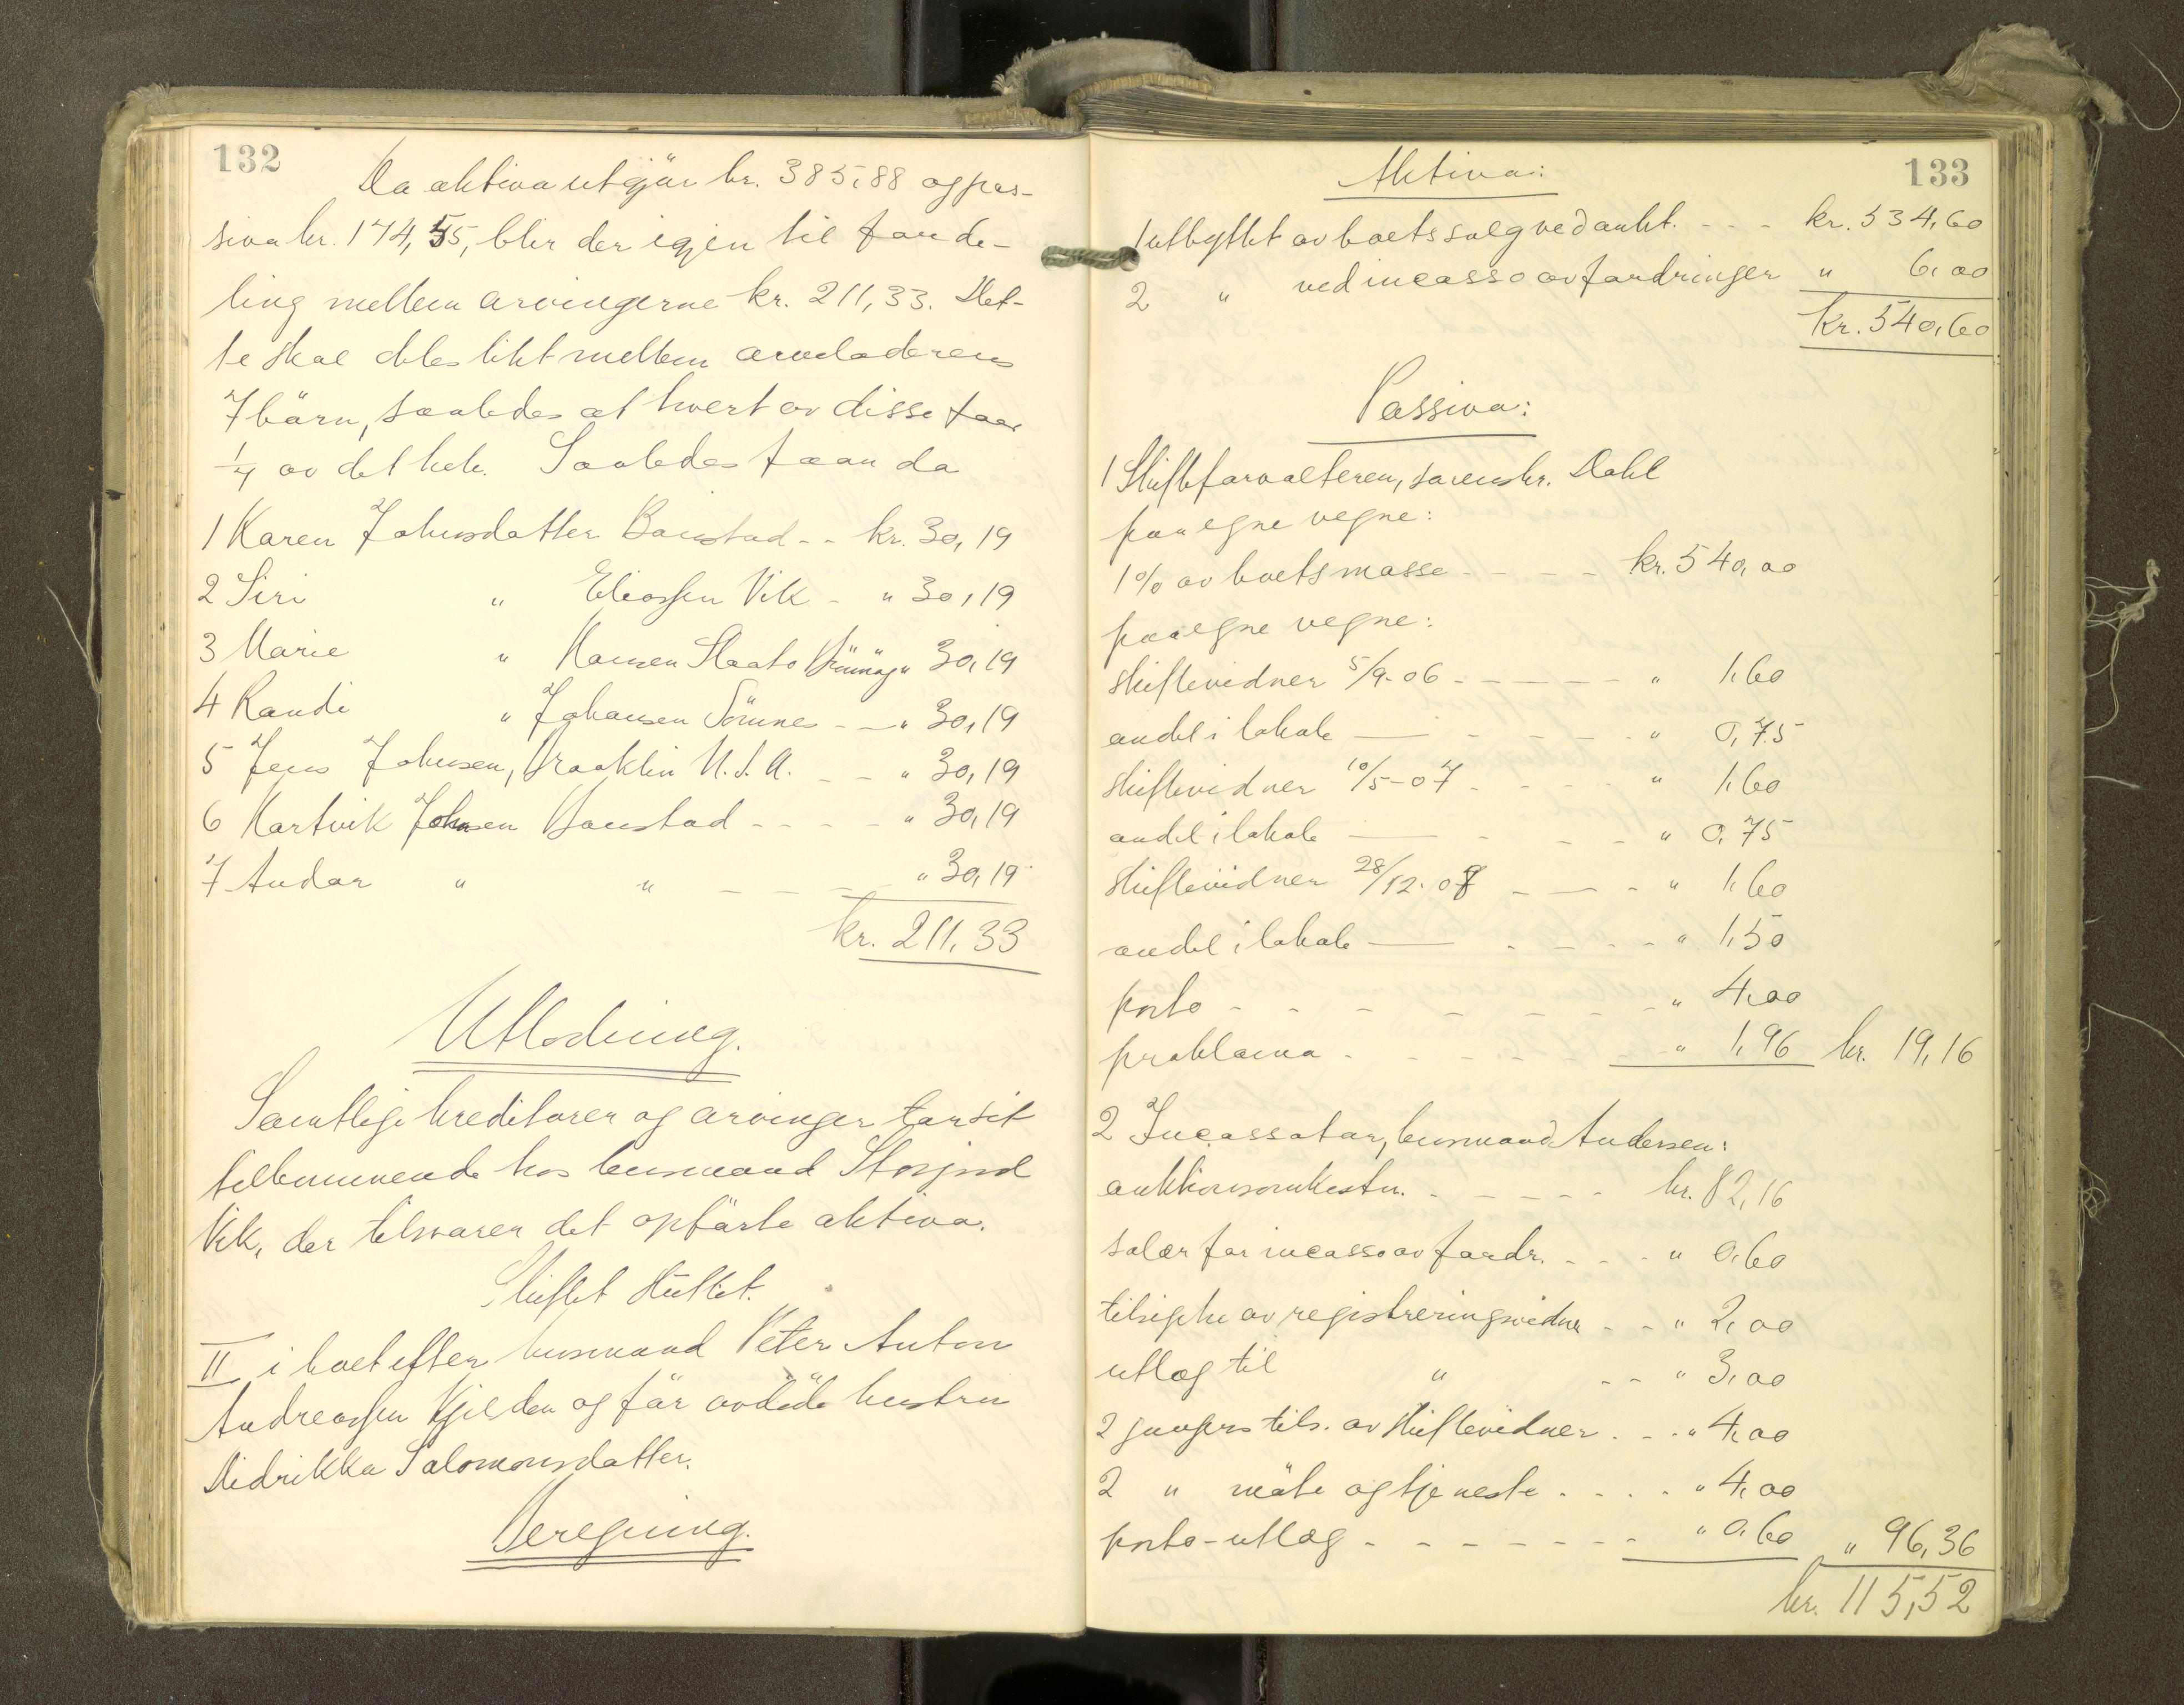 132
Da aktiva utgjør kr. 385,88 og pas-
siva kr. 174,55, blir der igjen til forde-
ling mellem arvingerne kr. 211,33. Det-
te skal deles likt mellem arveladerens
7 børn, saaledes at hvert av disse faar
1/7 av det hele. Saaledes faar da
1 Karen Johnsdatter Baustad -- kr. 30,19
2 Siri " Eliassen Vik - " 30,19
3 Marie " Hansen " 30,19
4 Randi " Johansen Sömnes - - " 30,19
5 Jens Johnsen, Brooklin U.S.A. - - " 30,19
6 Hartvik Johnsen Baustad - - - - " 30,19
7 Andor " " - - - - " 30,19
kr. 211,33
Utlodning.
Samtlige kreditorer og arvinger faar sit
tilkommende hos lensmand
Vik, der tilsvarer det opførte aktiva.
Skiftet sluttet.
II i boet efter husmand Peter Anton
Andreassen Kjelden og før avdøde hustru
Didrikka Salomonsdatter.
Beregning.
133
Aktiva:
1 utbyttet av boets salg ved aukt. - - - kr. 534,60
2 " ved incasso av fordringer " 6,00
kr. 540,60
Passiva:
1 Skifteforvalteren, sorenskr. Dahl
paa egne vegne:
1% av boets masse - - - - kr. 540,00
paa egne vegne:
skiftevidner 5/9-06 - - - - - " 1,60
andel i lokale - - - - - " 0,75
skiftevidner 10/5-07 - - - - " 1,60
andel i lokale - - - - " 0,75
skiftevidner 28/12-07 - - - " 1,60
andel i lokale - - - - - " 1,50
porto - - - - - - - " 4,00
proklama - - - - - " 1,96 kr. 19,16
2 Incassator, lensmand Andersen:
auktionsomkostn. - - - - - kr. 82,16
salær for incasso av fordr. - - - " 0,60
tilsigelse av registreringsvidner - - " 2,00
utlæg til " - - " 3,00
2 gangers tils. av skiftevidner - - " 4,00
2 " møte og tjeneste - - - - " 4,00
porto-utlæg - - - - - - - " 0,60 " 96,36
kr. 115,52